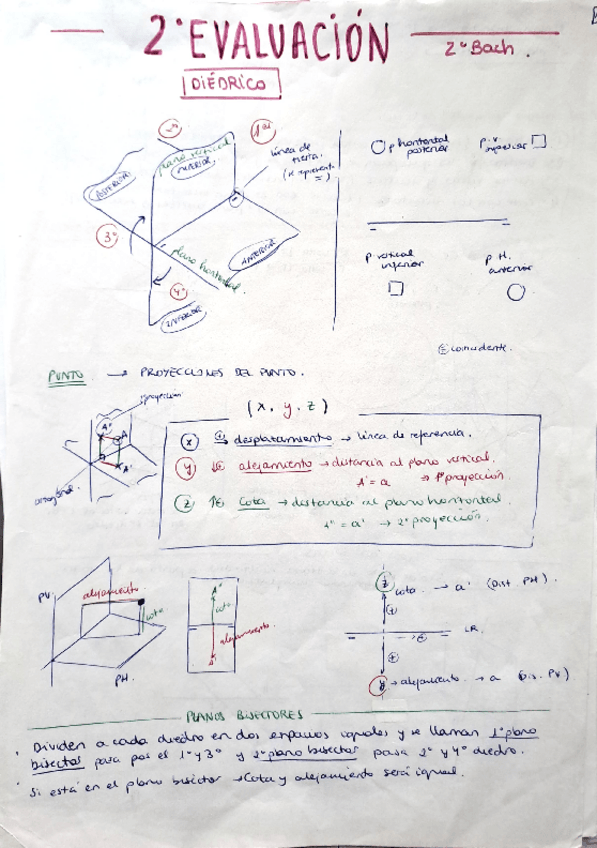 2º EVALUACIÓN
2º Bach.
DIÉDRICO
2º
1er
plano vertical
SUPERIOR
línea de
tierra.
(se representa
=)
POSTERIOR
3º
plano horizontal
ANTERIOR
4º
INFERIOR
p horizontal
posterior
p. v
superior
p vertical
inferior
p H.
anterior
coincidente.
PUNTO → PROYECCIONES DEL PUNTO.
proyección
A''
A
A'
(x, y, z)
x desplazamiento → línea de referencia.
y alejamiento → distancia al plano vertical.
A' = a → 1ª proyección
z cota → distancia al plano horizontal.
A'' = a' → 2ª proyección.
PV
alejamiento.
cota
PH.
A''
cota
alejamiento.
A'
z
cota → a' (Dist. PH).
LR.
y → alejamiento → a (Dis. PV)
PLANOS BISECTORES
· Dividen a cada diedro en dos espacios iguales y se llaman 1º plano
bisector pasa por el 1º y 3º y 2º plano bisector pasa 2º y 4º diedro.
· Si está en el plano bisector → Cota y alejamiento será igual.